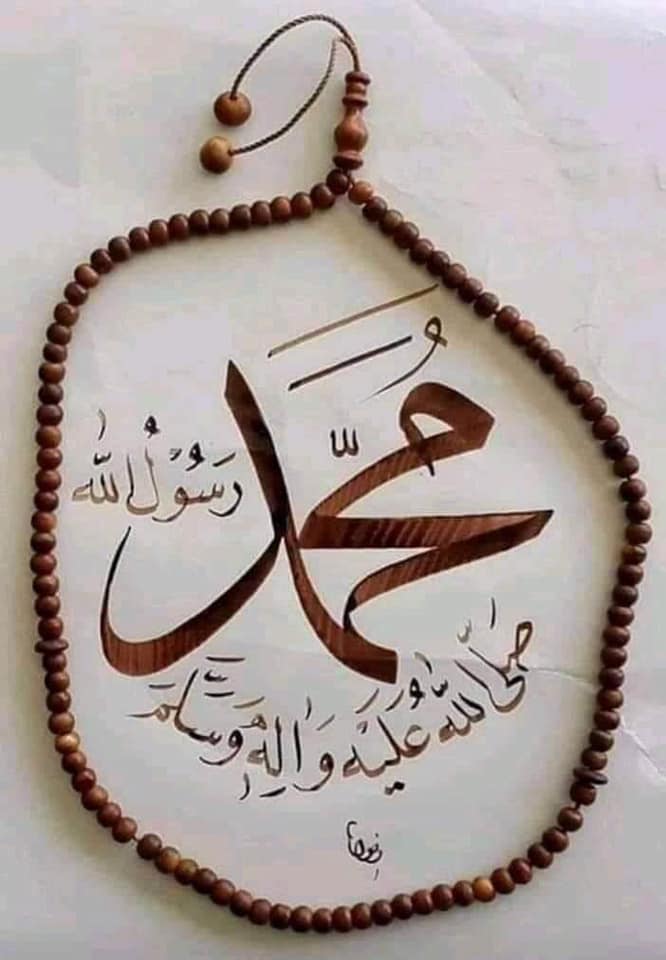 مُحَمَّدٌ
رَسُوْلُ اللّٰه
صَلَّى اللّٰه عَلَيْهِ وَاٰلِهٖ وَسَلَّمَ